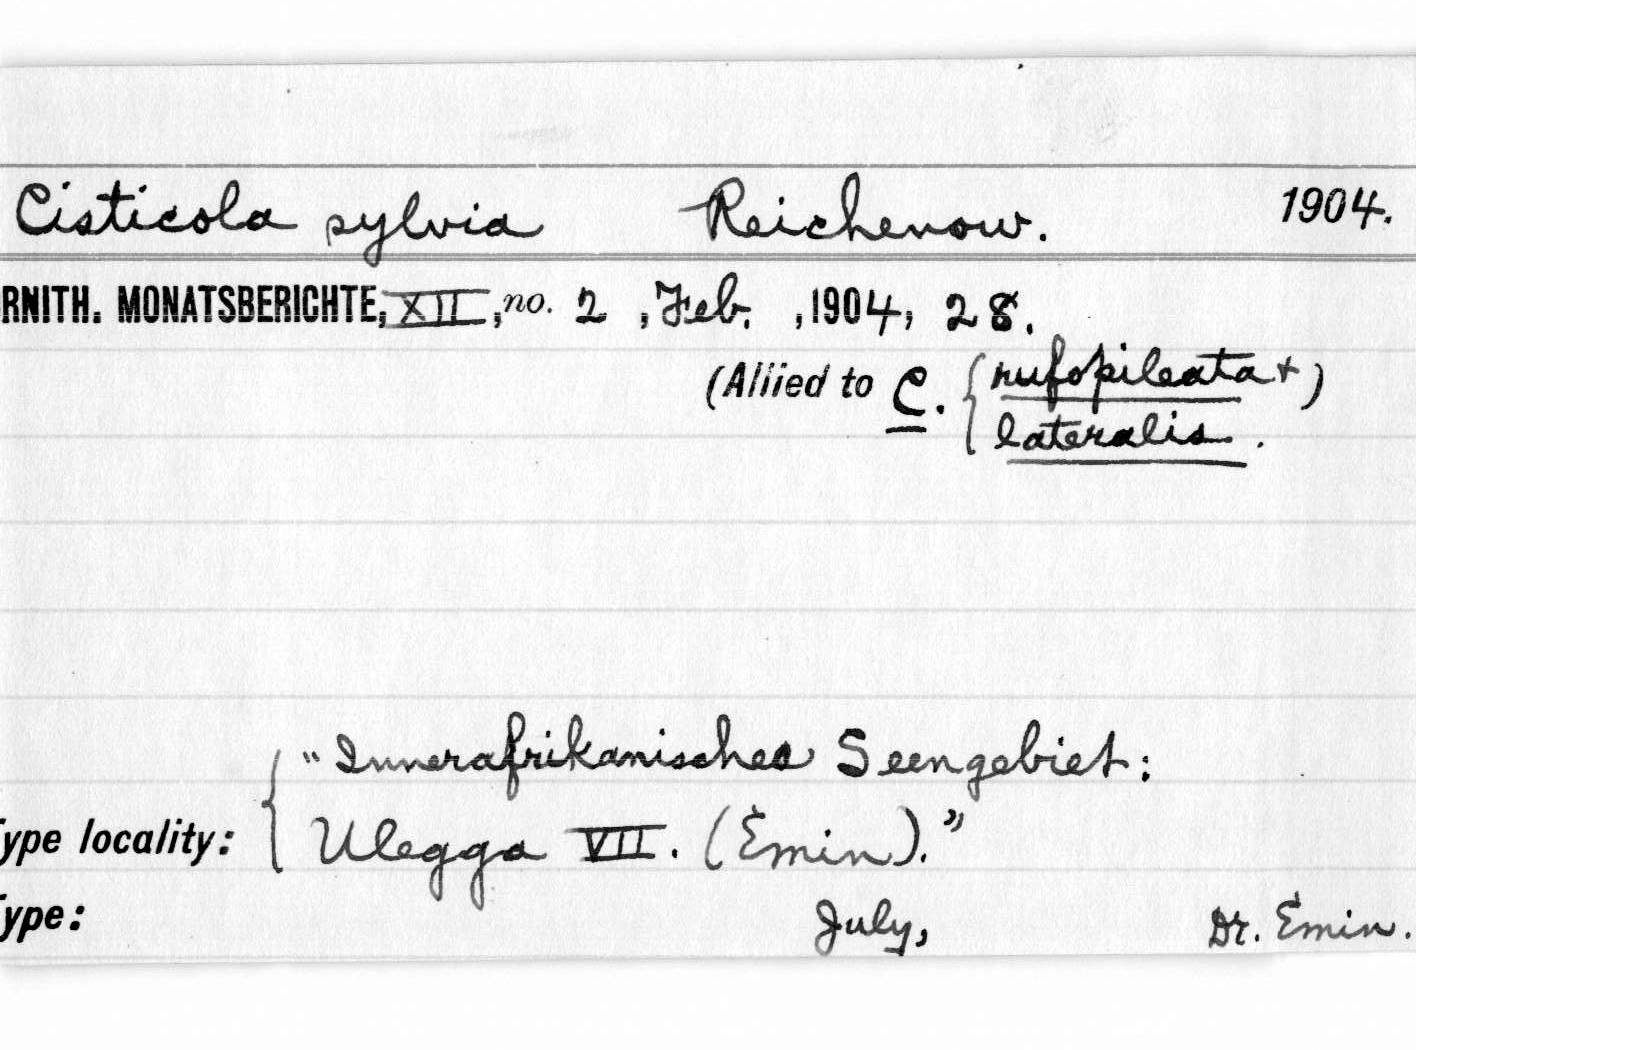 Cisticola sylvia Reichenow. 1904.
RNITH. MONATSBERICHTE, XII, no. 2, Feb., 1904, 28.
(Allied to C. { rufopileata + )
lateralis.
"Innerafrikanisches Seengebiet:
ype locality: { Ulegga VII. (Emin)."
ype: July, Dr. Emin.